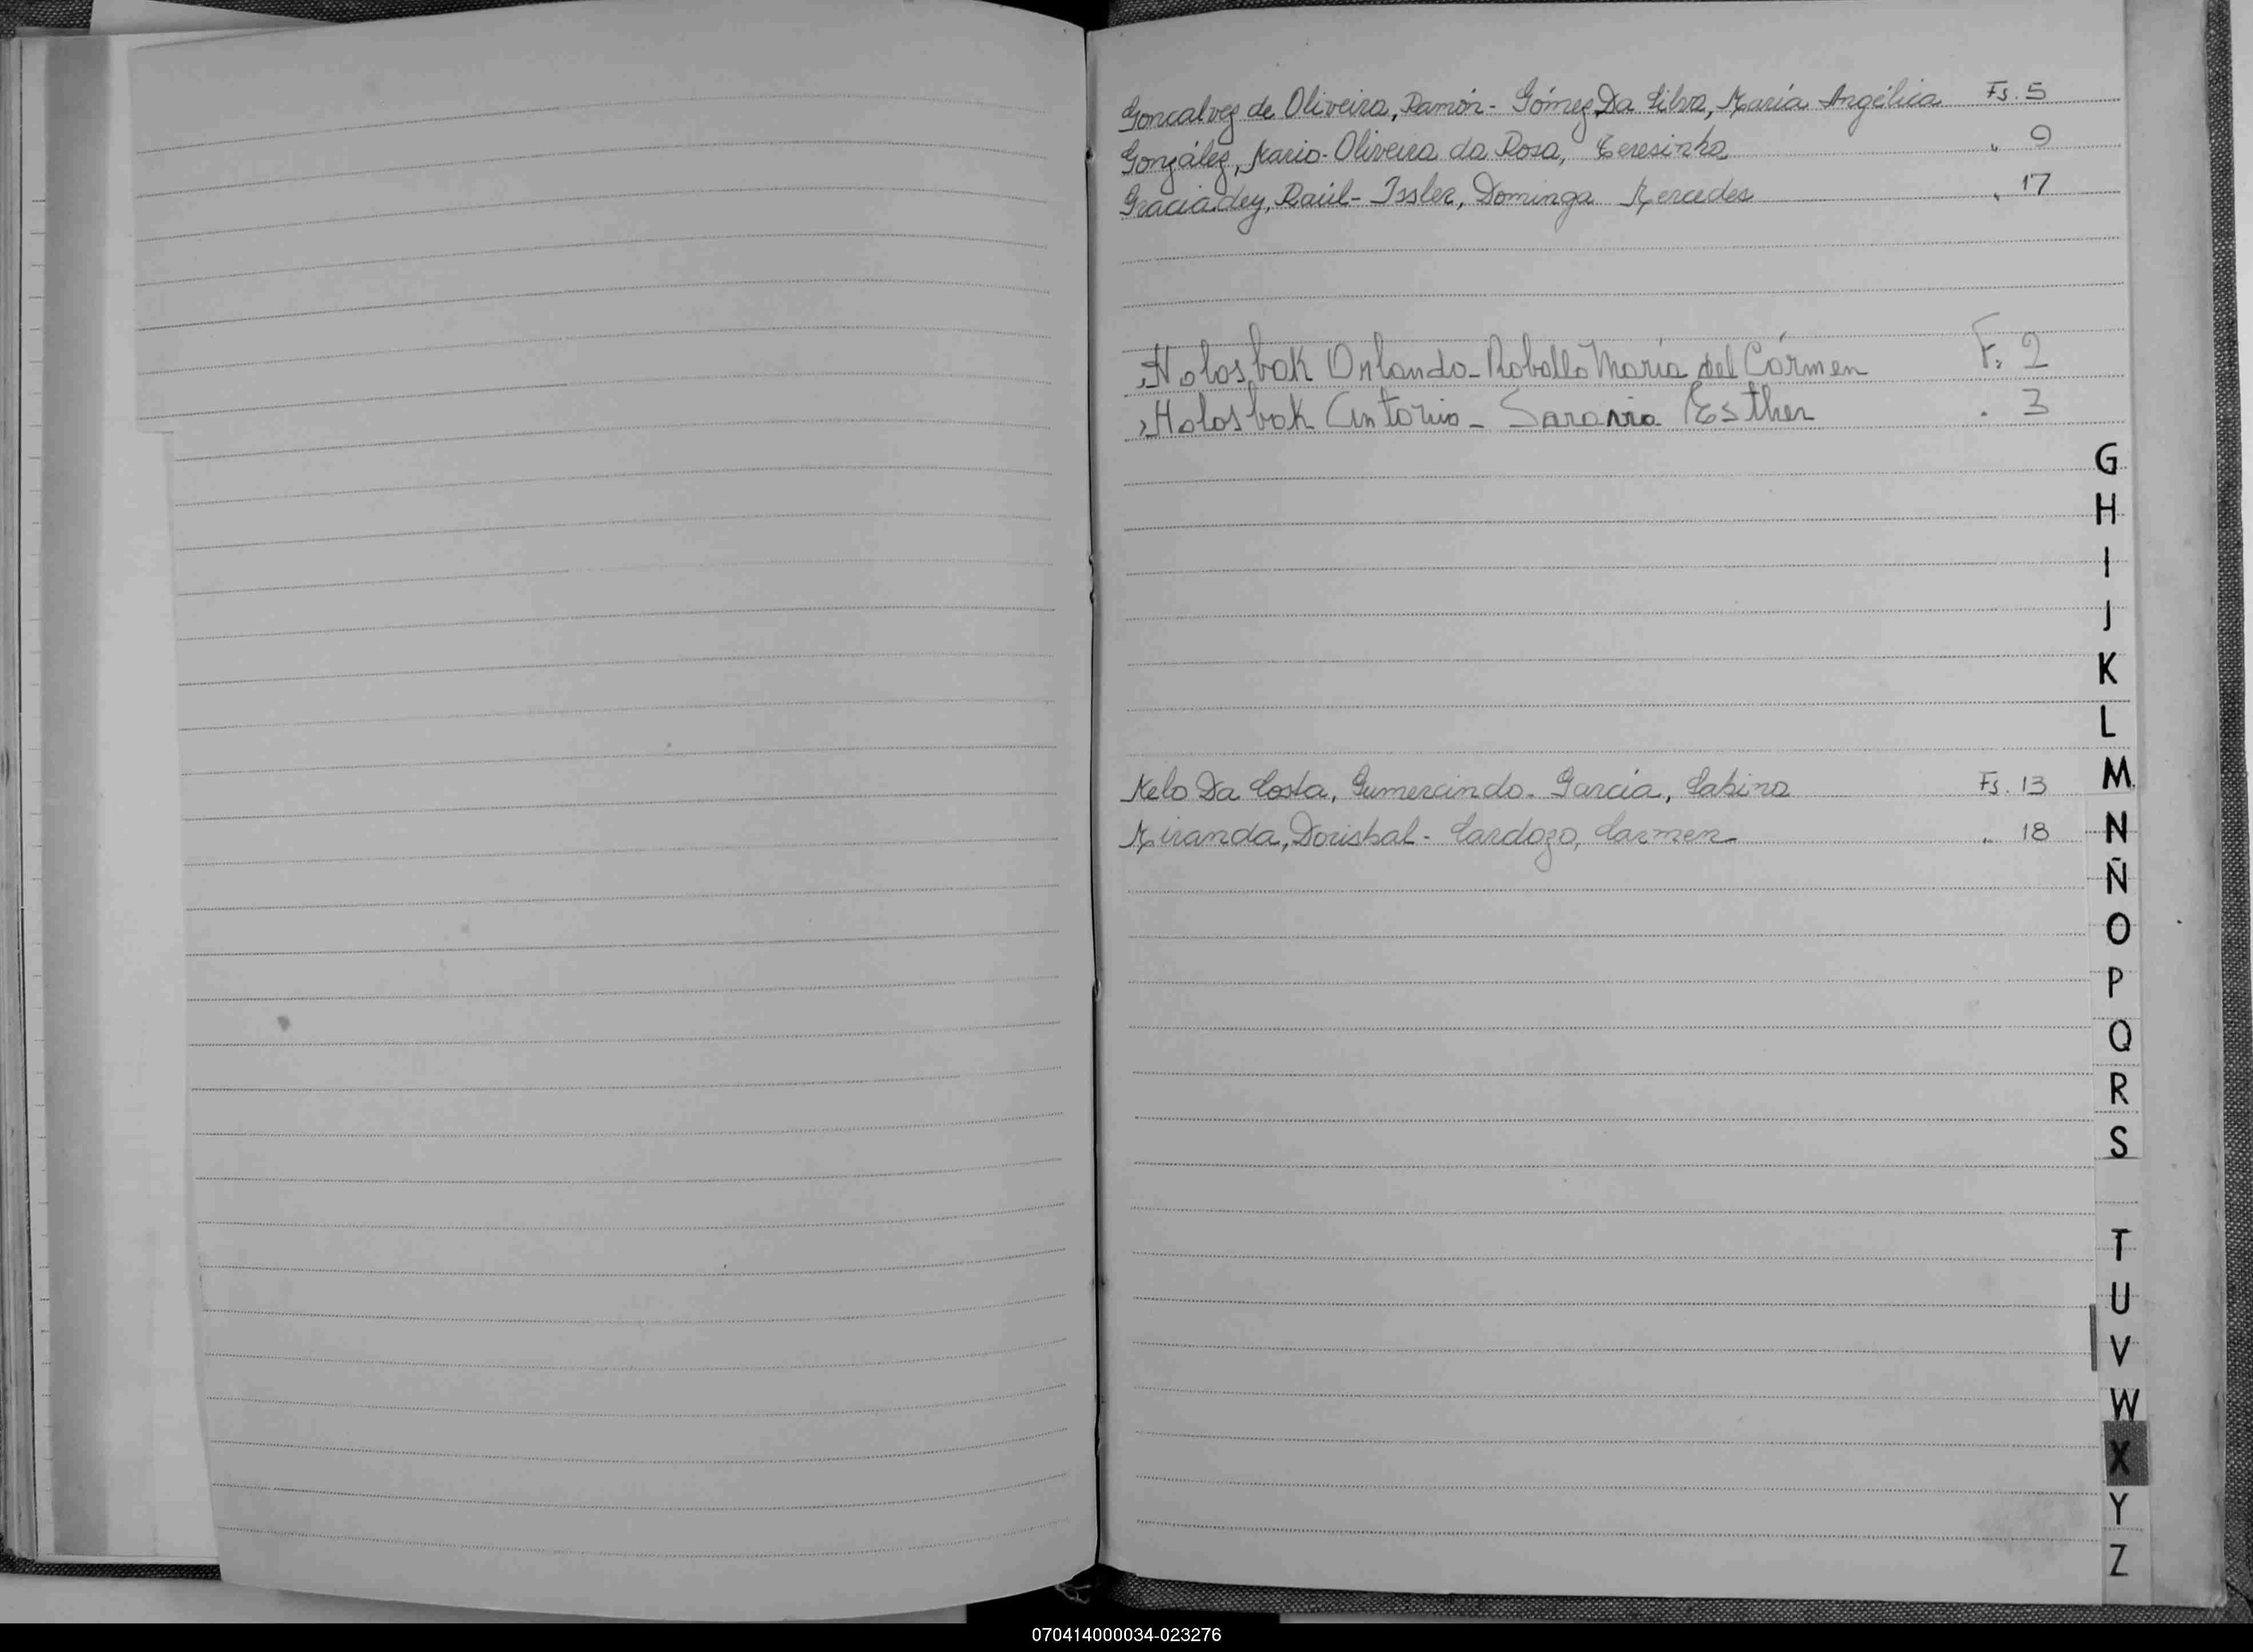 Goncalvez de Oliveira, Ramón - Gómez Da Silva, María Angélica Fs. 5
González, Mario - Oliveira da Rosa, Teresinha " 9
Graciadey, Raúl - Issler, Dominga Mercedes " 17
Holosbok Orlando - Roballo María del Cármen F. 2
Holosbok Antonio - Saravia Esther . 3
G
H
I
J
K
L
Melo Da Costa, Gumercindo - García, Sabina Fs. 13
M
Miranda, Dorisbal - Cardozo, Carmen " 18
N
Ñ
O
P
Q
R
S
T
U
V
W
X
Y
Z
070414000034-023276